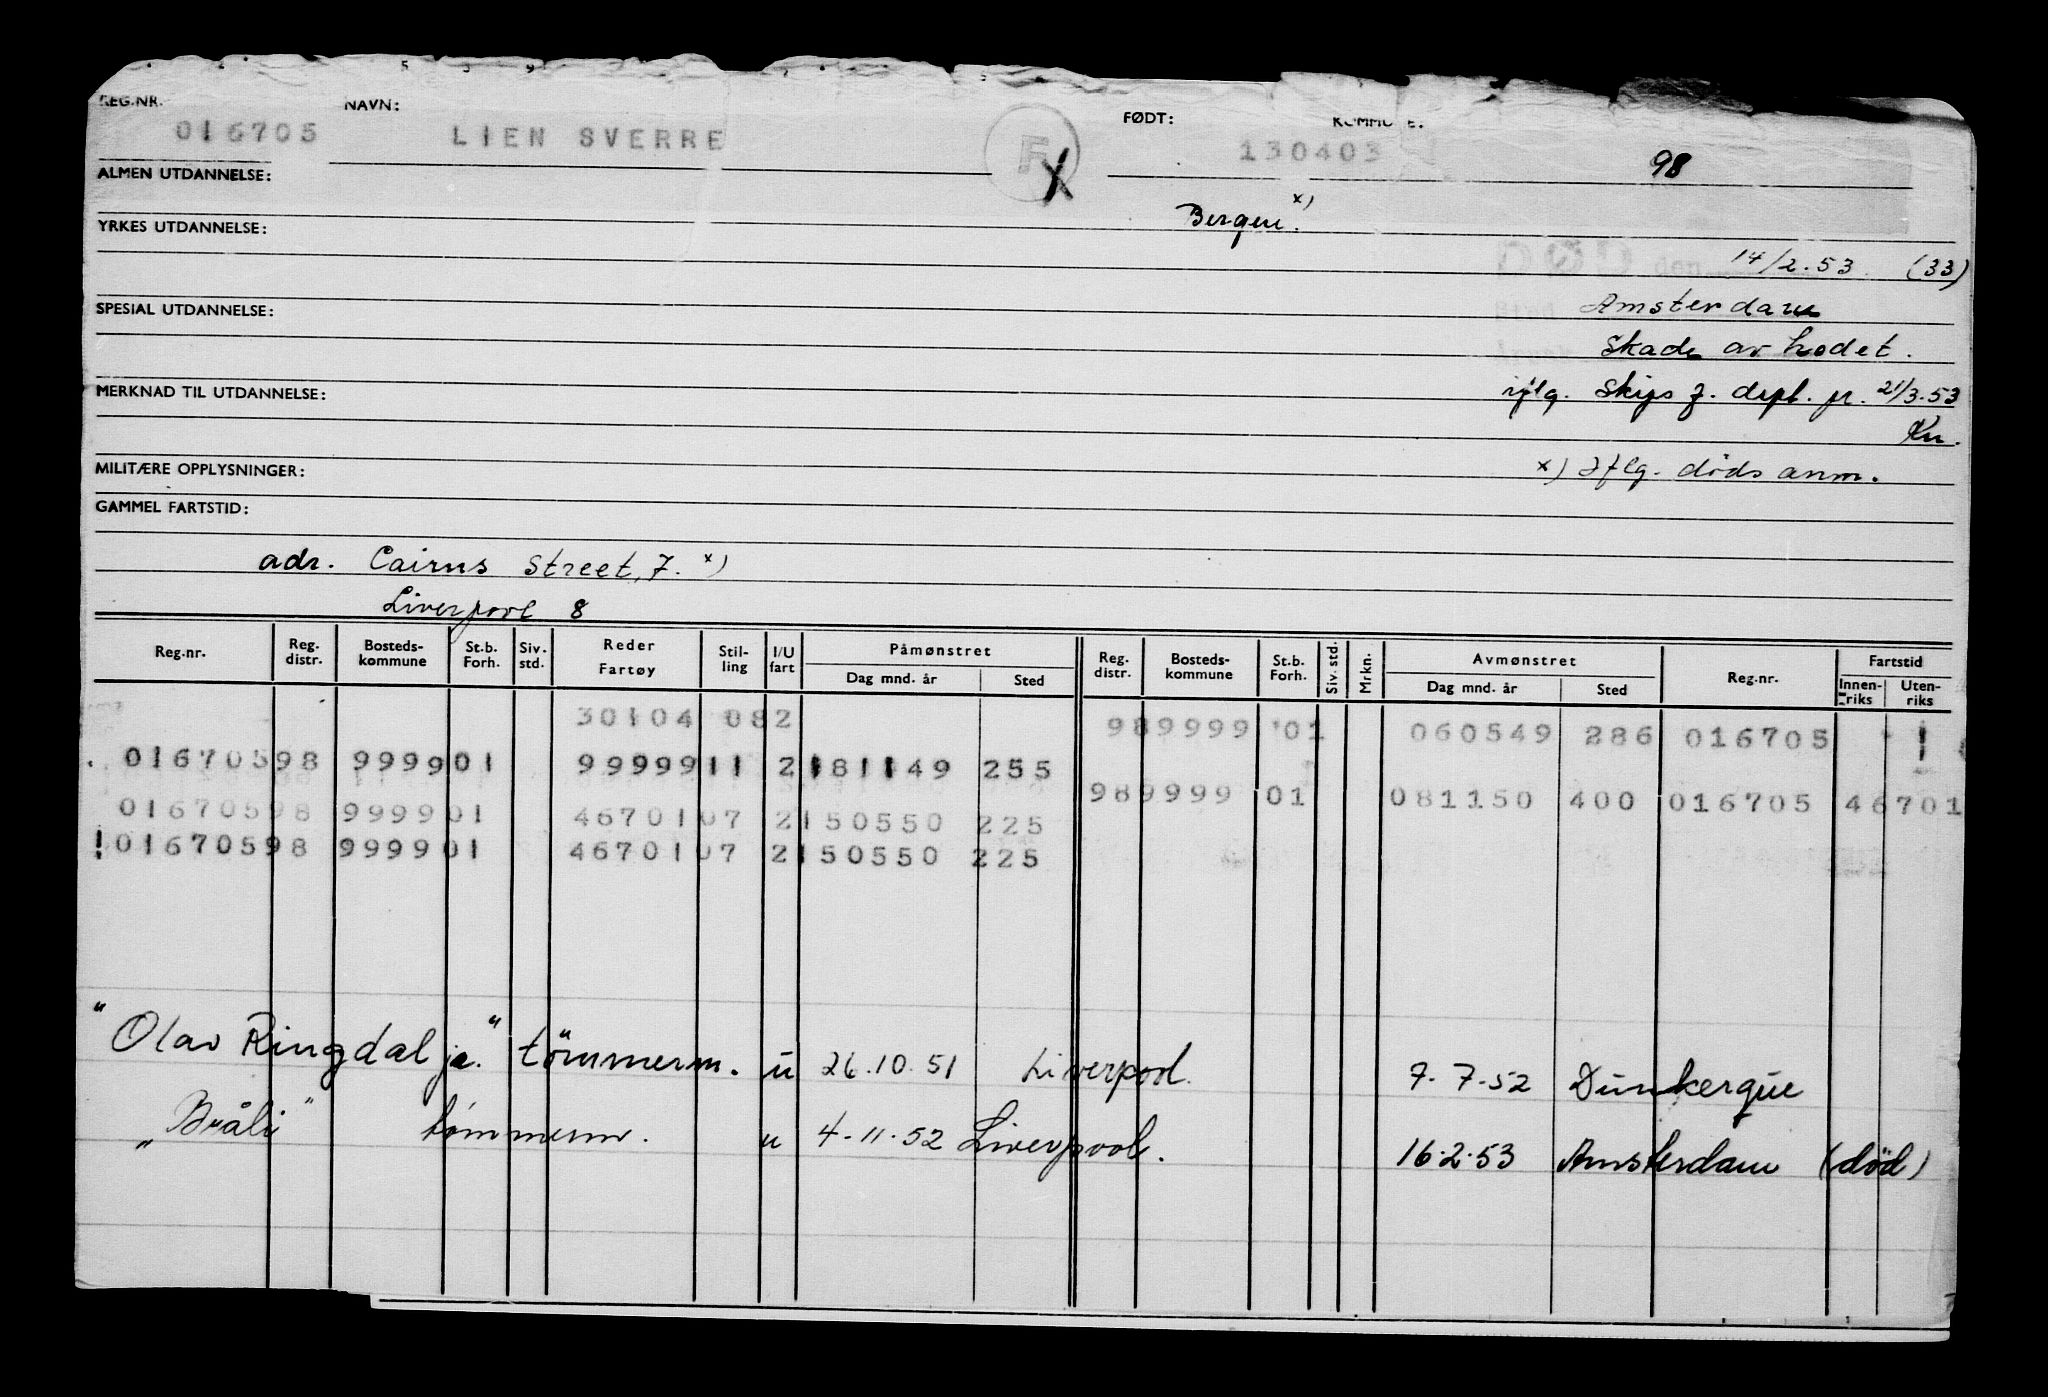 REG.NR. NAVN: FØDT: KOMMUNE:
016705 LIEN SVERRE F X 130403 98
ALMEN UTDANNELSE:
Bergen. x)
YRKES UTDANNELSE:
DØD den 14/2.53. (33)
SPESIAL UTDANNELSE: Amsterdam
Skade av hodet.
MERKNAD TIL UTDANNELSE: iflg. Skips f. dept. pr. 21/3.53
Kn.
MILITÆRE OPPLYSNINGER: x) Iflg. døds anm.
GAMMEL FARTSTID:
adr. Cairns Street, 7. x)
Liverpool 8
Reg.nr. Reg. distr. Bosteds-kommune St.b. Forh. Siv. std. Reder Fartøy Stil-ling I/U fart Påmønstret Dag mnd. år Sted Reg. distr. Bosteds-kommune St.b. Forh. Siv. std. Mrkn. Avmønstret Dag mnd. år Sted Reg.nr. Fartstid Innen-riks Uten-riks
30104 082 989999 01 060549 286 016705
01670598 999901 9999911 2181149 255
989999 01 081150 400 016705 46701
01670598 999901 4670107 2150550 225
01670598 999901 4670107 2150550 225
"Olav Ringdal jr." tömmerm. u 26.10.51 Liverpool 7.7.52 Dunkerque
"Bråli" tømmerm. u 4-11-52 Liverpool. 16.2.53 Amsterdam (død)